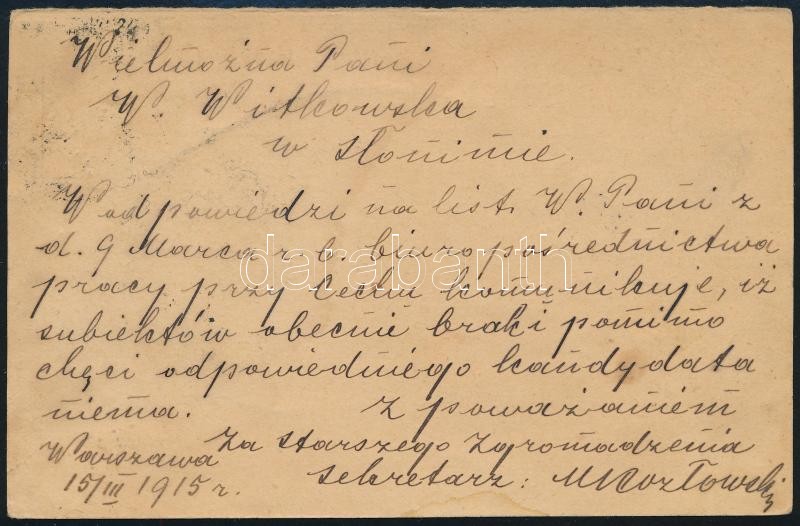 Wielmożna Pani
W. Witkowska
w Słonimie.
W odpowiedzi na list W. Pani z
d. 9 Marca r. b. biuro pośrednictwa
pracy przy Cechu komunikuje, iż
subiektów obecnie brak i pomimo
chęci odpowiedniego kandydata
niema. Z poważaniem
Za starszego Zgromadzenia
Warszawa sekretarz: MKozłowski
15/III 1915 r.
darabanth